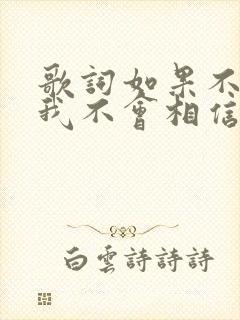 歌詞如果不
我不會相信
白雲詩詩詩